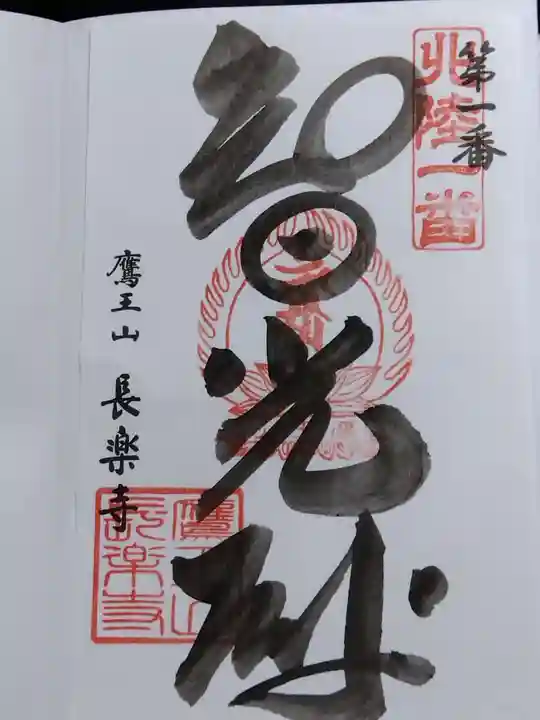 北陸一番
第一番
智光殿
鷹王山 長楽寺
鷹王山
長楽寺